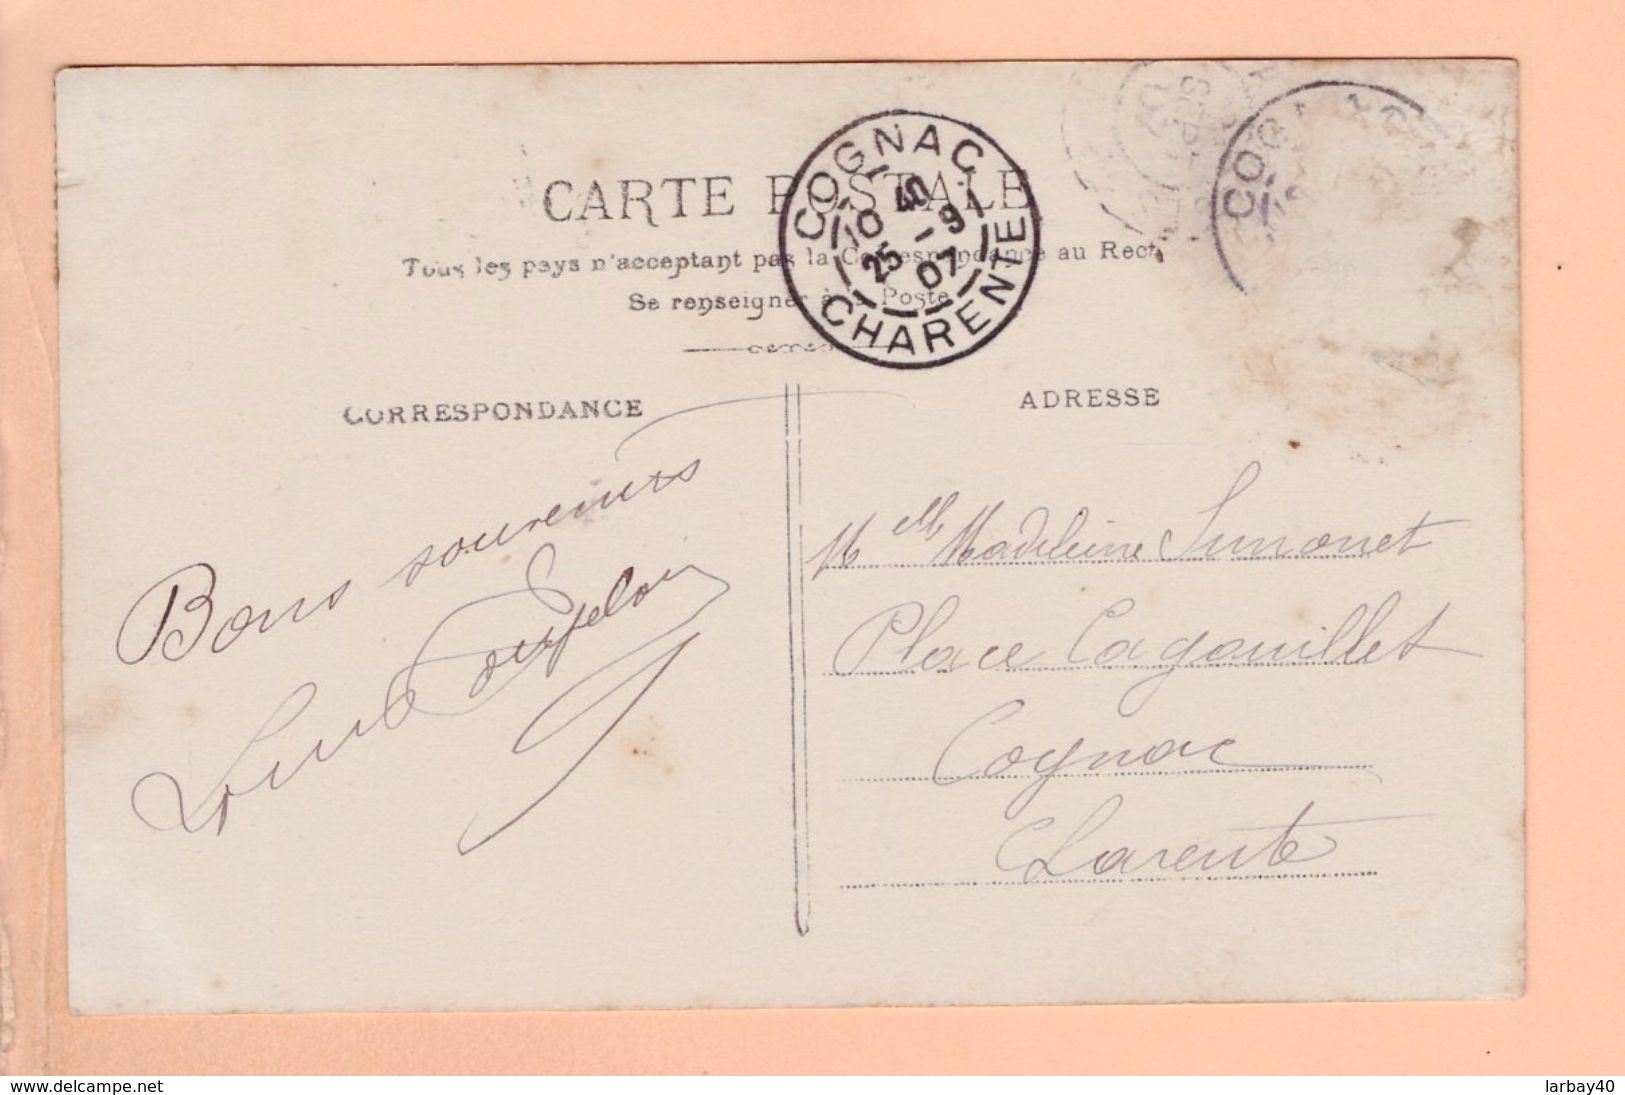 CARTE POSTALE
Tous les pays n'acceptant pas la Correspondance au Rect
Se renseigner à la Poste
COGNAC
10 40
25 - 9
07
CHARENTE
COGNAC
CORRESPONDANCE
ADRESSE
Bons souvenirs
Melle Madeleine Simonet
Place Cagouillet
Cognac
Charente
www.delcampe.net
larbay40